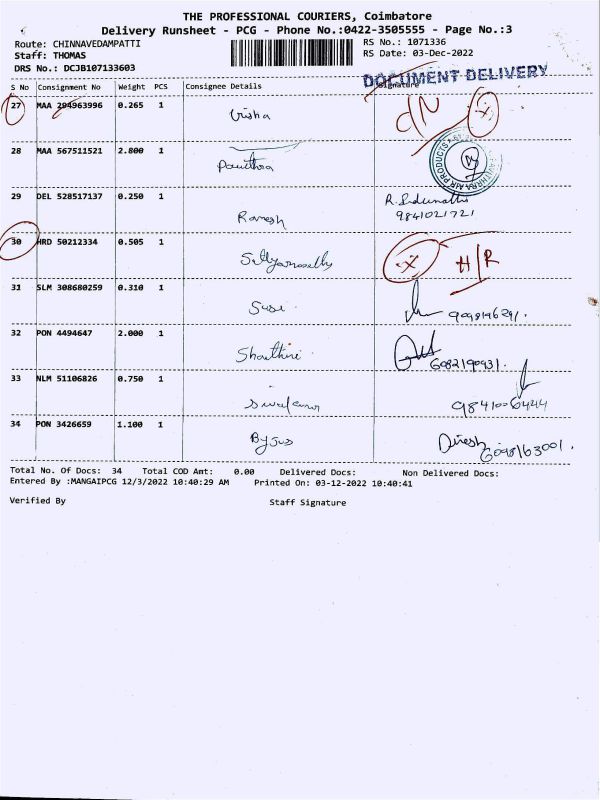 THE PROFESSIONAL COURIERS, Coimbatore
Delivery Runsheet - PCG - Phone No.:0422-3505555 - Page No.:3
Route: CHINNAVEDAMPATTI RS No.: 1071336
Staff: THOMAS RS Date: 03-Dec-2022
DRS No.: DCJB107133603
DOCUMENT DELIVERY
S No Consignment No Weight PCS Consignee Details Signature
27 MAA 294963996 0.265 1 Usha
28 MAA 567511521 2.800 1 Pavithra
29 DEL 528517137 0.250 1 Ramesh
9841021721
30 HRD 50212334 0.505 1 H/R
31 SLM 308680259 0.310 1 Susi
32 PON 4494647 2.000 1 Shanthini
33 NLM 51106826 0.750 1
34 PON 3426659 1.100 1 Byjus Dinesh
Total No. Of Docs: 34 Total COD Amt: 0.00 Delivered Docs: Non Delivered Docs:
Entered By :MANGAIPCG 12/3/2022 10:40:29 AM Printed On: 03-12-2022 10:40:41
Verified By Staff Signature